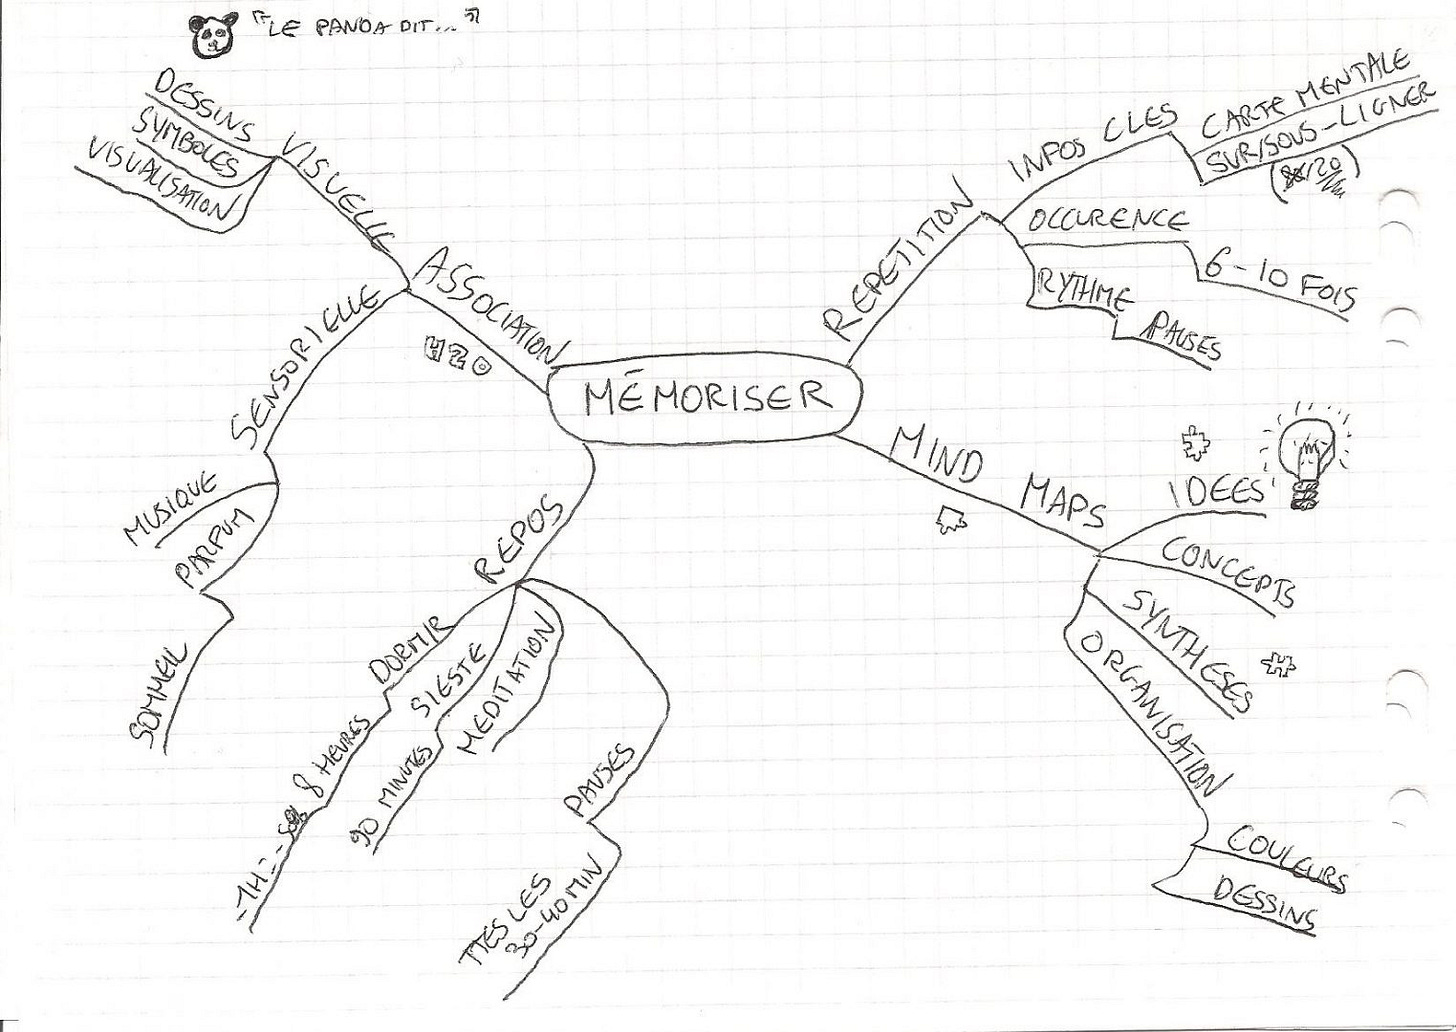 "LE PANDA DIT..."
MÉMORISER
ASSOCIATION
H2O
VISUELLE
DESSINS
SYMBOLES
VISUALISATION
SENSORIELLE
MUSIQUE
PARFUM
SOMMEIL
REPOS
DORMIR
8 HEURES
-1H =
SIESTE
90 MINUTES
MEDITATION
PAUSES
TTES LES
30-40 MIN
REPETITION
INFOS CLES
CARTE MENTALE
SUR/SOUS-LIGNER
OCCURENCE
6-10 FOIS
RYTHME
PAUSES
MIND MAPS
IDEES
CONCEPTS
SYNTHESES
ORGANISATION
COULEURS
DESSINS